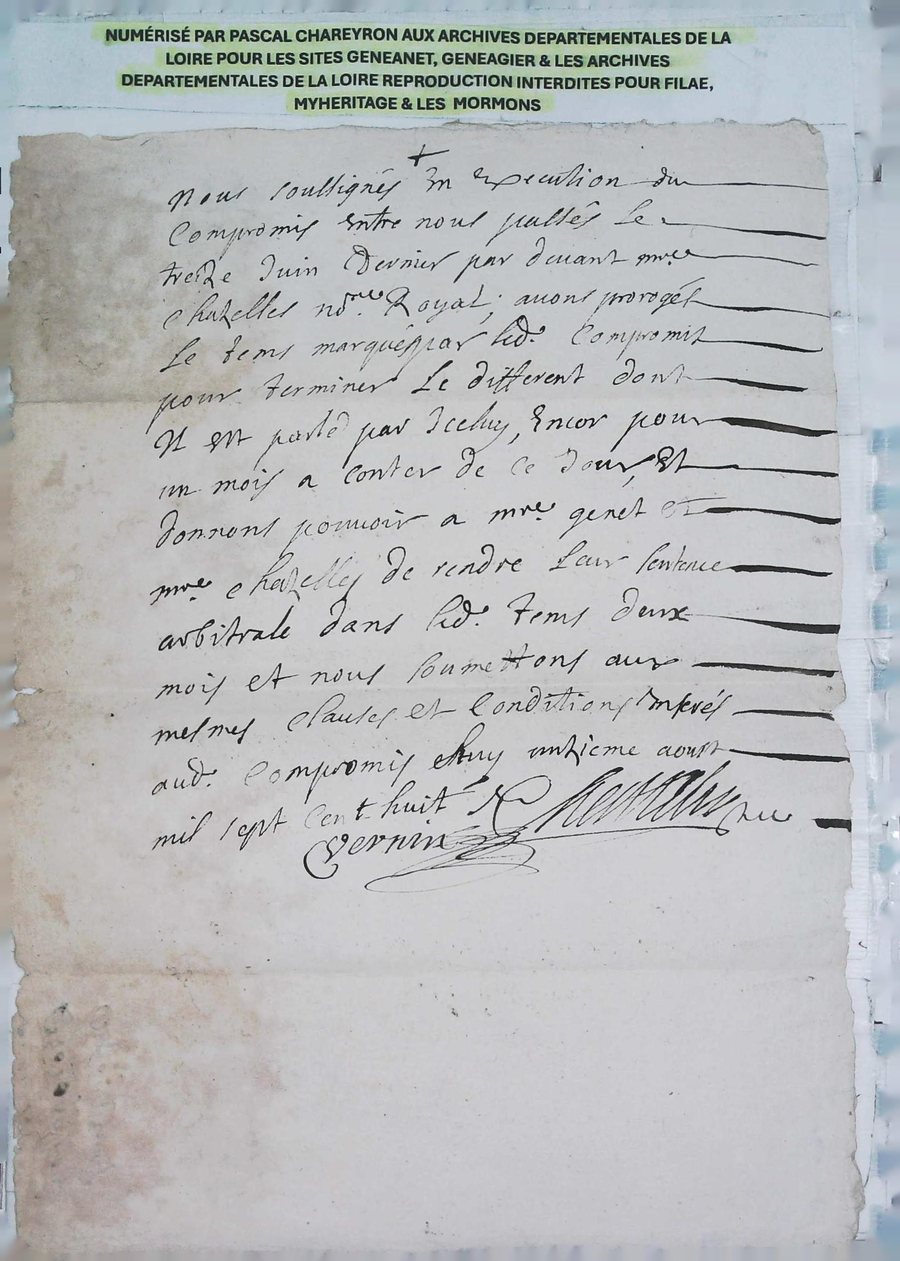 NUMÉRISÉ PAR PASCAL CHAREYRON AUX ARCHIVES DEPARTEMENTALES DE LA
LOIRE POUR LES SITES GENEANET, GENEAGIER & LES ARCHIVES
DEPARTEMENTALES DE LA LOIRE REPRODUCTION INTERDITES POUR FILAE,
MYHERITAGE & LES MORMONS
Nous soussignés En Execution du
Compromis Entre nous passés Le
treize Juin Dernier par devant mre
Chazelles nore Royal, avons prorogés
Le tems marqués par led. Compromit
pour terminer Le different dont
Il est parlé par Iceluy, Encor pour
un mois a conter de ce Jour, Et
donnons pouvoir a mre genet et
mre chazelles de rendre Leur sentence
arbitrale dans led. tems deux
mois et nous soumettons aux
mesmes clauses et Conditions Inserés
aud. Compromis unzieme aoust
mil sept cent huit
Vernin